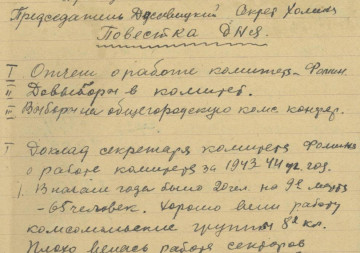 Председатель Дусовицкий Секрет Холина
Повестка дня.
I Отчет о работе комитета – Фомин.
II Довыборы в комитет.
III Выборы на общегородскую комс. конфер.
I Доклад секретаря комитета Фомина
о работе комитета за 1943-44 уч. год.
1. В начале года было 20 чел. на 9е марта
– 65 человек. Хорошо вели работу
комсомольские группы 8х кл.
Плохо велась работа секторов